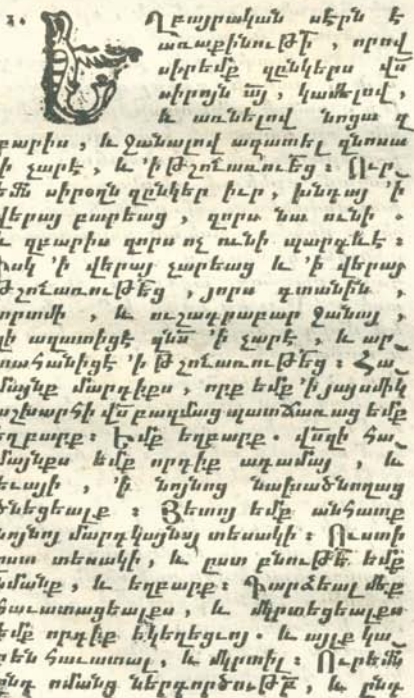 3. Եղբայրական սէրն է
առաքինութի՛, որով
սիրեմք զընկերս վս
սիրոյն այ, կամելով,
և առնելով նոցա զ
բարիս, և ջանալով ազատել զնոսա
ի չարէ, և ՚ի թշուառուեց։ Ուր֊
եմն սիրօղն զընկեր իւր, խնդայ ՚ի
վերայ բարեաց, զորս նա ունի.
և զբարիս զորս ոչ ունի պարգևէ։
իսկ ՚ի վերայ չարեաց և ՚ի վերայ
թշուառուեց, յորս գտանին,
որտմի, և ուշադրաբար ջանայ,
զի ազատիցէ զնա ՚ի չարէ, և ար֊
տահանիցէ ՚ի թշուառուեց։ Հա֊
մայնք մարդիքս, որք եմք ՚ի յայսմիկ
աշխարհի վս բազմաց պատճառաց եմք
եղբարք։ Եմք եղբարք. վասզի հա֊
մայնքս եմք որդիք ադամայ, և
եւայի, ՚ի նոյնոց նախածնողաց
ծնեցեալք։ Յետոյ եմք անհատք
նոյնոյ մարդկայնոյ տեսակի։ Ուստի
ըստ տեսակի, և ըստ բնութե եմք
նմանք, և եղբարք։ Դարձեալ մեք
հաւատացեալքս, և մկրտեցեալքս
եմք որդիք եկեղեցւոյ. և այլք կա֊
րեն հաւատալ, և մկրտիլ։ Ուրեմն
ընդ ոմանց ներգործութբ, և ընդ